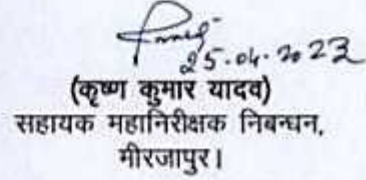 25.04.2023
(कृष्ण कुमार यादव)
सहायक महानिरीक्षक निबन्धन,
मीरजापुर।